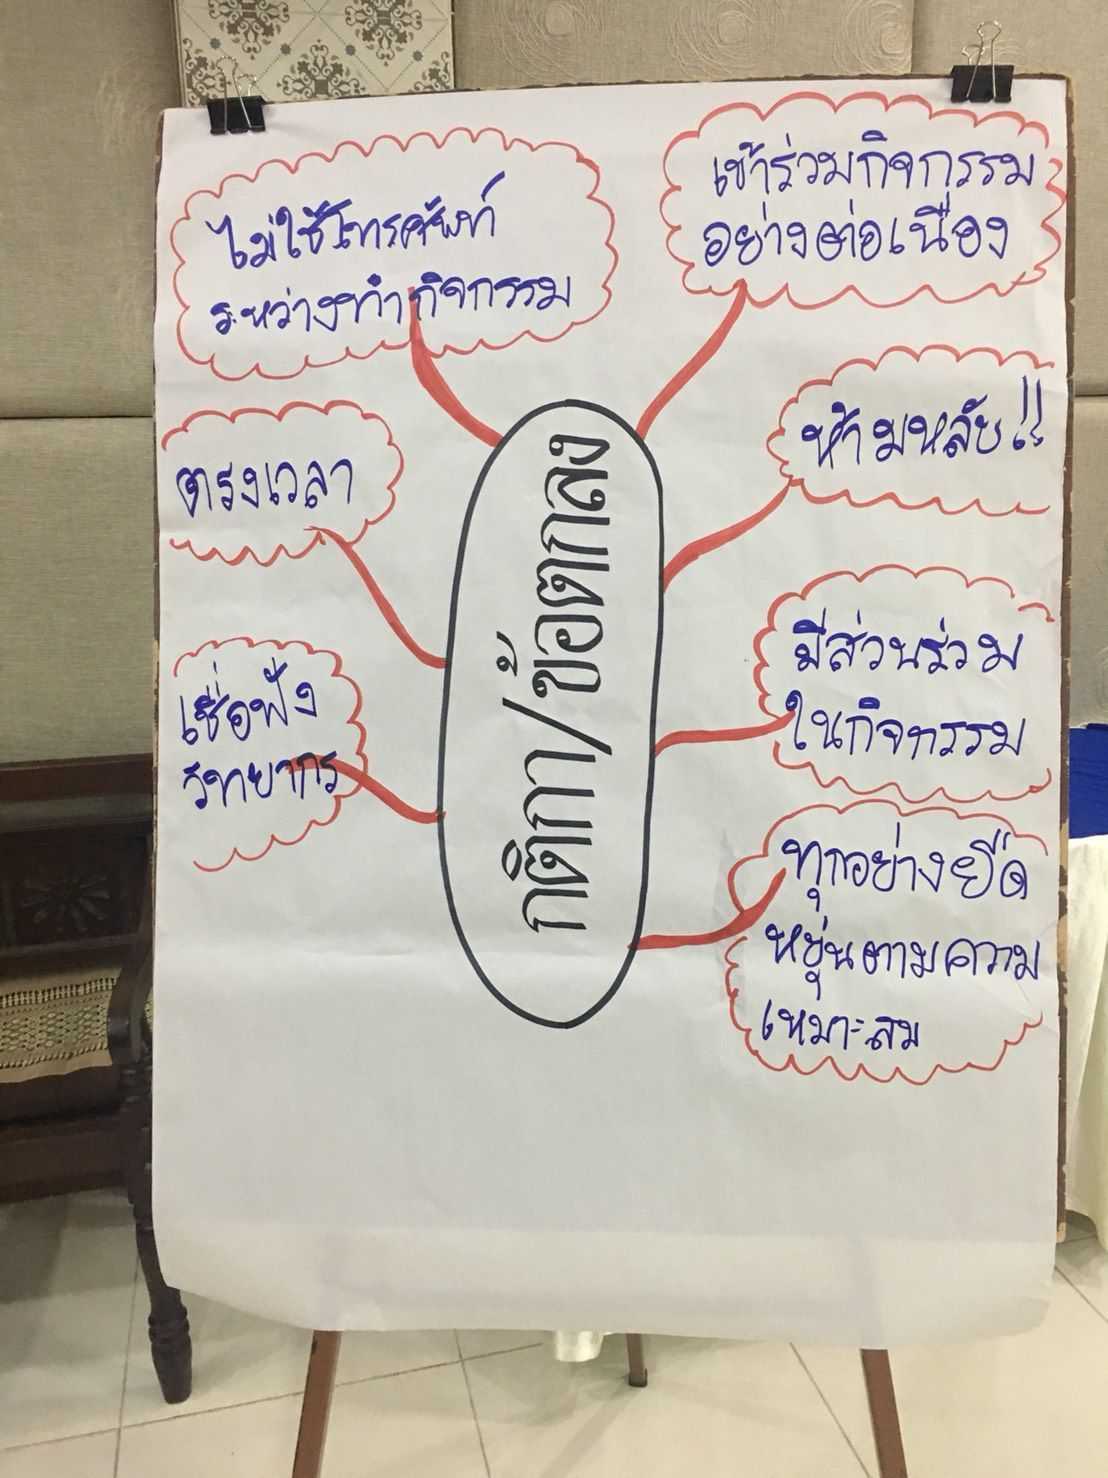 ไม่ใช้โทรศัพท์
ระหว่างทำกิจกรรม
ตรงเวลา
เชื่อฟัง
วิทยากร
กติกา/ข้อตกลง
เข้าร่วมกิจกรรม
อย่างต่อเนื่อง
ห้ามหลับ!!
มีส่วนร่วม
ในกิจกรรม
ทุกอย่างยืด
หยุ่นตามความ
เหมาะสม